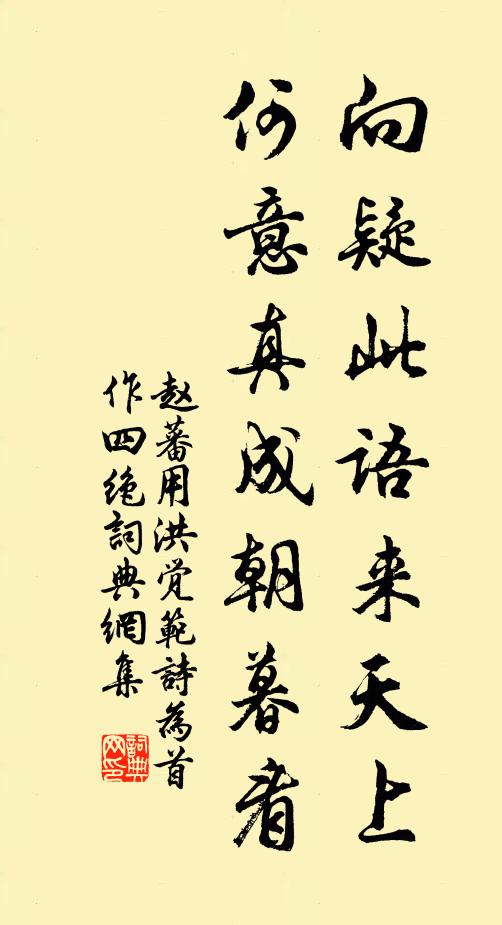 向疑此语来天上
何意真成朝暮看
赵蕃用洪觉範詩為首
作四绝詞典網集
詞典
网印